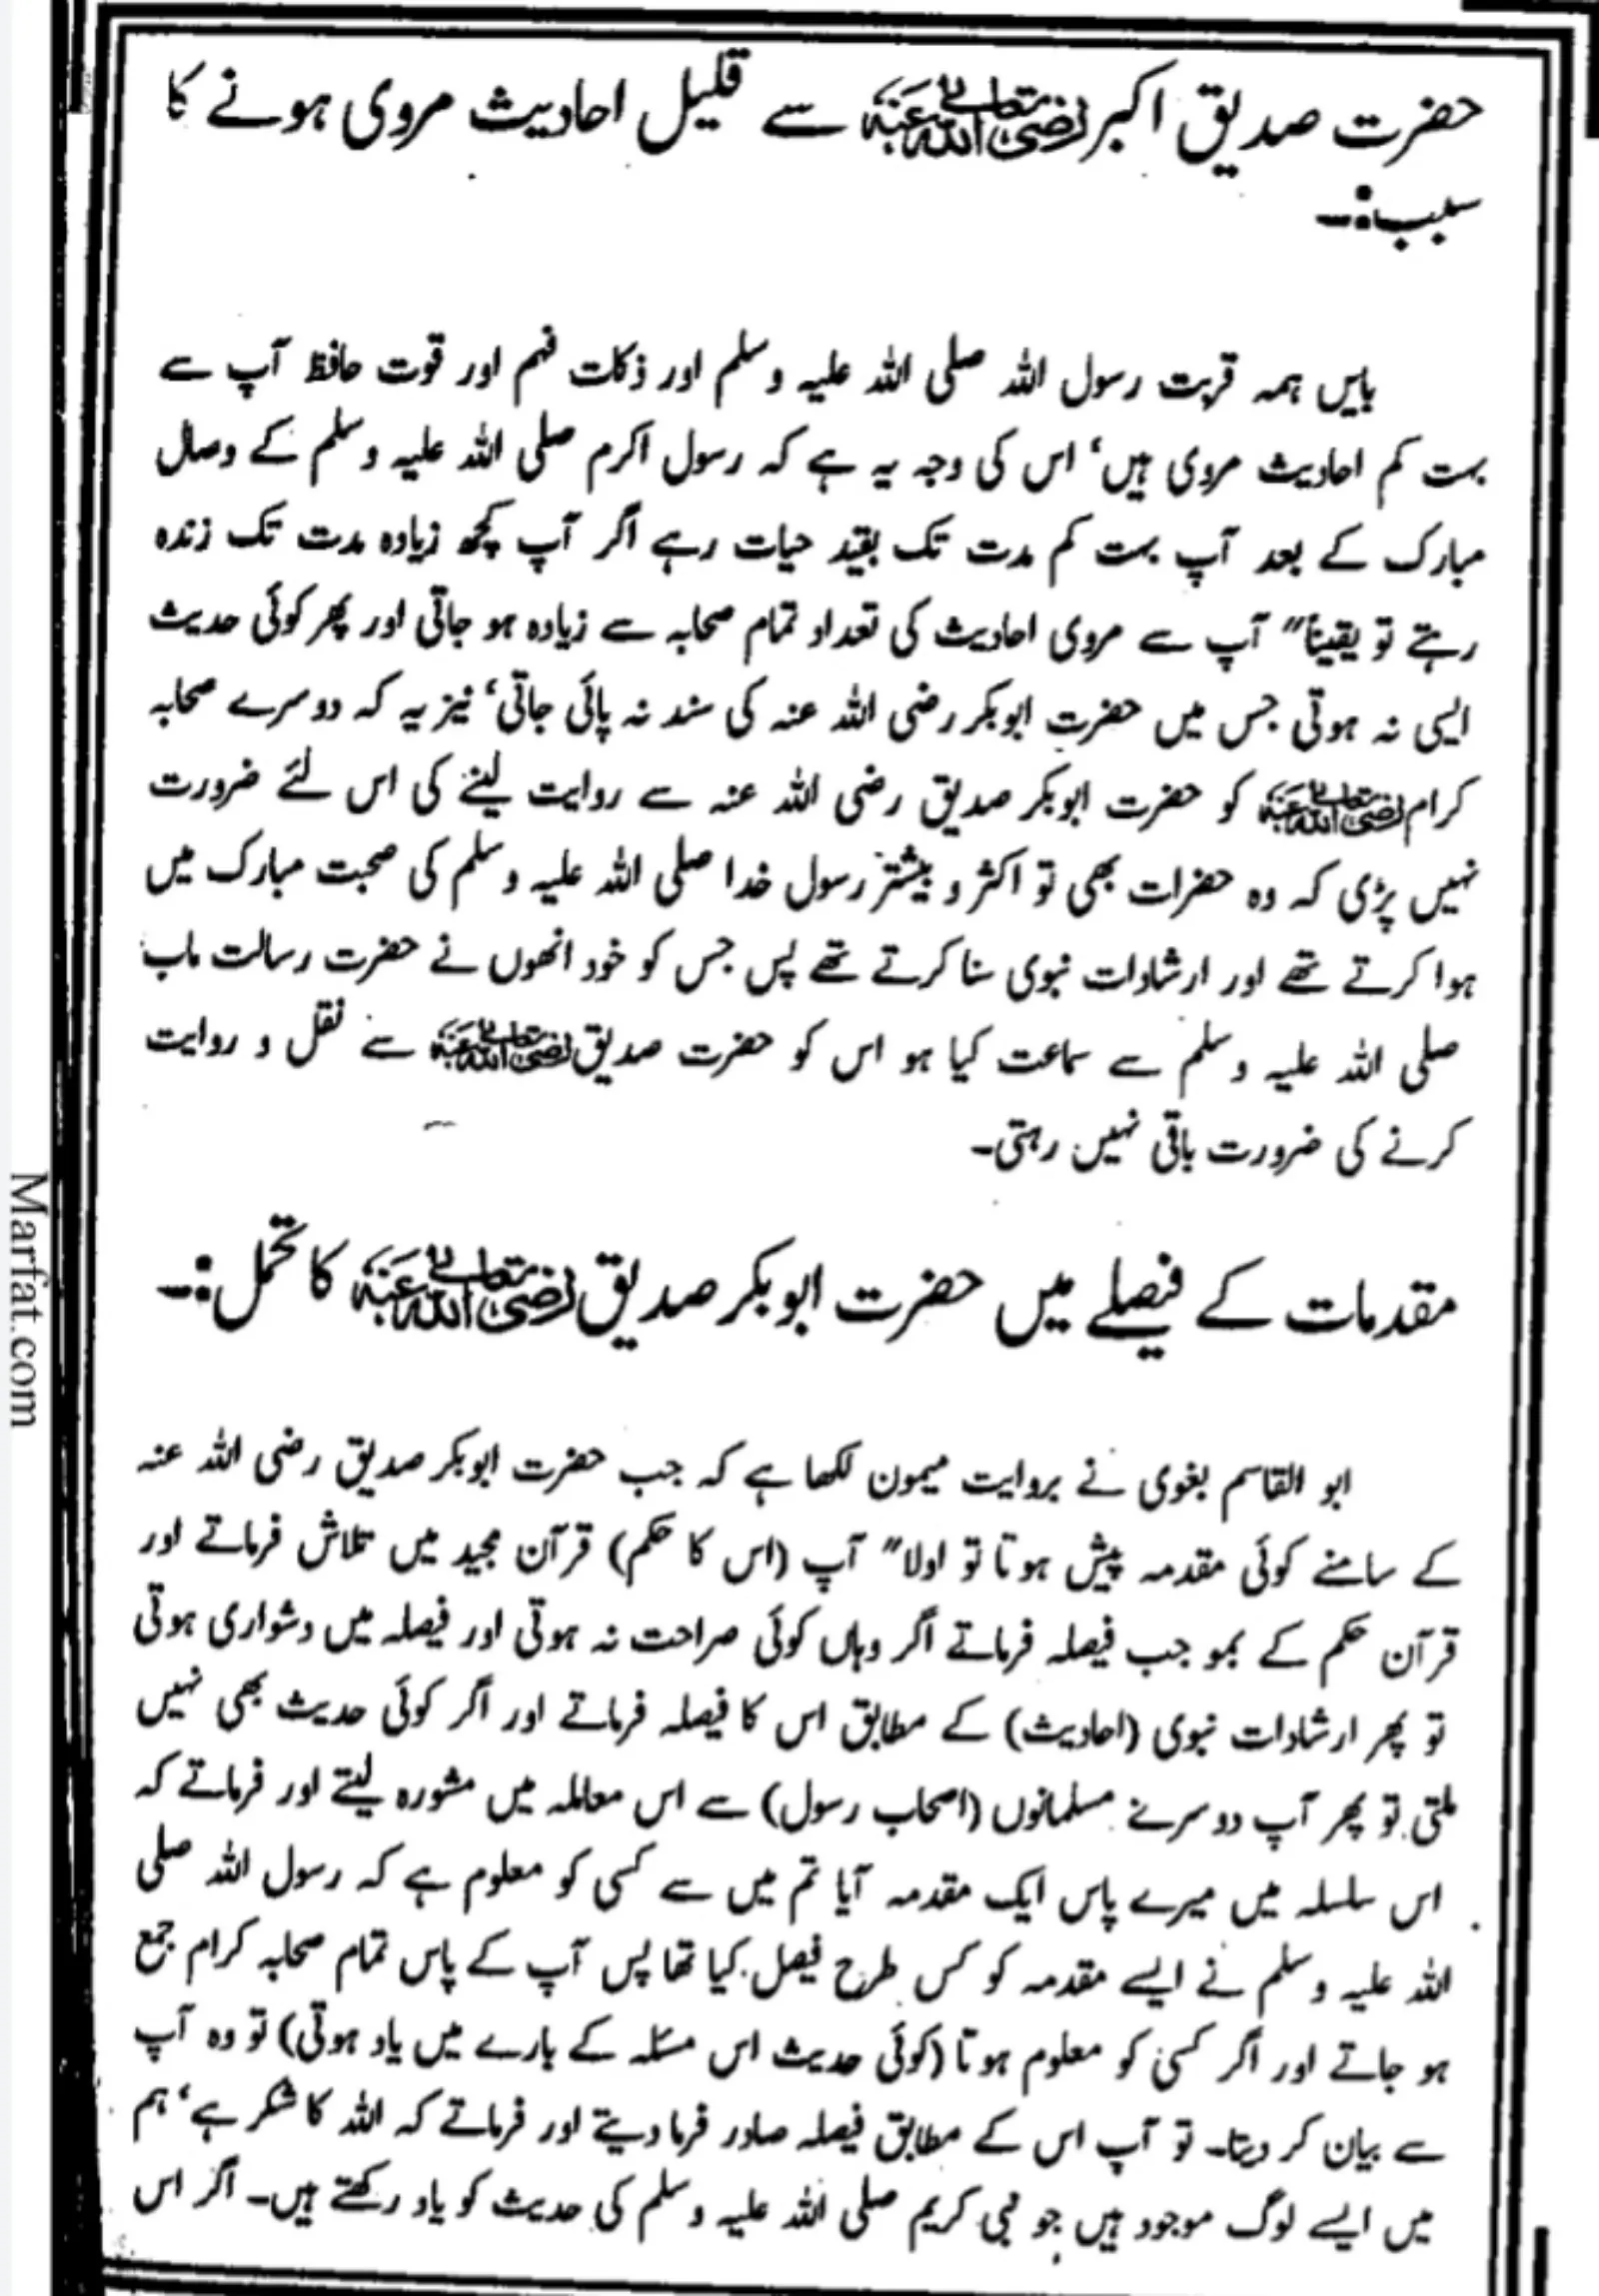 حضرت صدیق اکبر رضی اللہ تعالیٰ عنہ سے قلیل احادیث مروی ہونے کا
سبب:۔
بایں ہمہ قربت رسول اللہ صلی اللہ علیہ وسلم اور ذکات فہم اور قوت حافظ آپ سے
بہت کم احادیث مروی ہیں‘ اس کی وجہ یہ ہے کہ رسول اکرم صلی اللہ علیہ وسلم کے وصال
مبارک کے بعد آپ بہت کم مدت تک بقید حیات رہے اگر آپ کچھ زیادہ مدت تک زندہ
رہتے تو یقیناً" آپ سے مروی احادیث کی تعداد تمام صحابہ سے زیادہ ہو جاتی اور پھر کوئی حدیث
ایسی نہ ہوتی جس میں حضرت ابوبکر رضی اللہ عنہ کی سند نہ پائی جاتی‘ نیز یہ کہ دوسرے صحابہ
کرام رضی اللہ تعالیٰ عنہ کو حضرت ابوبکر صدیق رضی اللہ عنہ سے روایت لینے کی اس لئے ضرورت
نہیں پڑی کہ وہ حضرات بھی تو اکثر و بیشتر رسول خدا صلی اللہ علیہ وسلم کی صحبت مبارک میں
ہوا کرتے تھے اور ارشادات نبوی سنا کرتے تھے پس جس کو خود انھوں نے حضرت رسالت ماب
صلی اللہ علیہ وسلم سے سماعت کیا ہو اس کو حضرت صدیق رضی اللہ تعالیٰ عنہ سے نقل و روایت
کرنے کی ضرورت باقی نہیں رہتی۔
مقدمات کے فیصلے میں حضرت ابوبکر صدیق رضی اللہ تعالیٰ عنہ کا تحمل:۔
ابو القاسم بغوی نے بروایت میمون لکھا ہے کہ جب حضرت ابوبکر صدیق رضی اللہ عنہ
کے سامنے کوئی مقدمہ پیش ہوتا تو اولا" آپ (اس کا حکم) قرآن مجید میں تلاش فرماتے اور
قرآن حکم کے بموجب فیصلہ فرماتے اگر وہاں کوئی صراحت نہ ہوتی اور فیصلہ میں دشواری ہوتی
تو پھر ارشادات نبوی (احادیث) کے مطابق اس کا فیصلہ فرماتے اور اگر کوئی حدیث بھی نہیں
ملتی تو پھر آپ دوسرے مسلمانوں (اصحاب رسول) سے اس معاملہ میں مشورہ لیتے اور فرماتے کہ
اس سلسلہ میں میرے پاس ایک مقدمہ آیا تم میں سے کسی کو معلوم ہے کہ رسول اللہ صلی
اللہ علیہ وسلم نے ایسے مقدمہ کو کس طرح فیصل کیا تھا پس آپ کے پاس تمام صحابہ کرام جمع
ہو جاتے اور اگر کسی کو معلوم ہوتا (کوئی حدیث اس مسئلہ کے بارے میں یاد ہوتی) تو وہ آپ
سے بیان کر دیتا۔ تو آپ اس کے مطابق فیصلہ صادر فرما دیتے اور فرماتے کہ اللہ کا شکر ہے‘ ہم
میں ایسے لوگ موجود ہیں جو نبی کریم صلی اللہ علیہ وسلم کی حدیث کو یاد رکھتے ہیں۔ اگر اس
Marfat.com